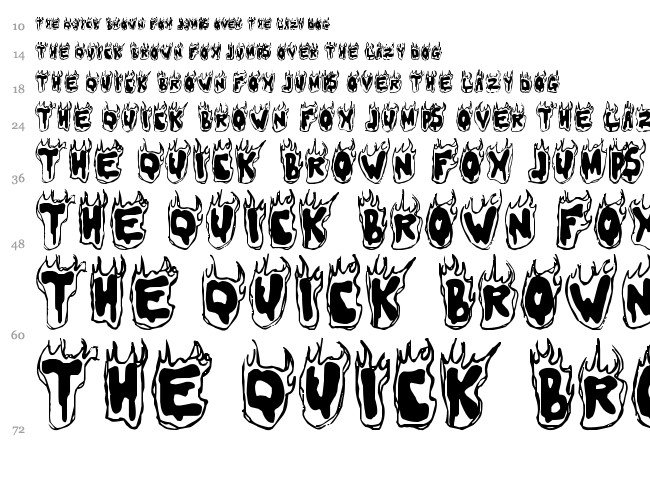 10 THE QUICK BROWN FOX JUMPS OVER THE LAZY DOG
14 THE QUICK BROWN FOX JUMPS OVER THE LAZY DOG
18 THE QUICK BROWN FOX JUMPS OVER THE LAZY DOG
24 THE QUICK BROWN FOX JUMPS OVER THE LAZ
36 THE QUICK BROWN FOX JUMPS
48 THE QUICK BROWN FOX
60 THE QUICK BROWN
72 THE QUICK BRO